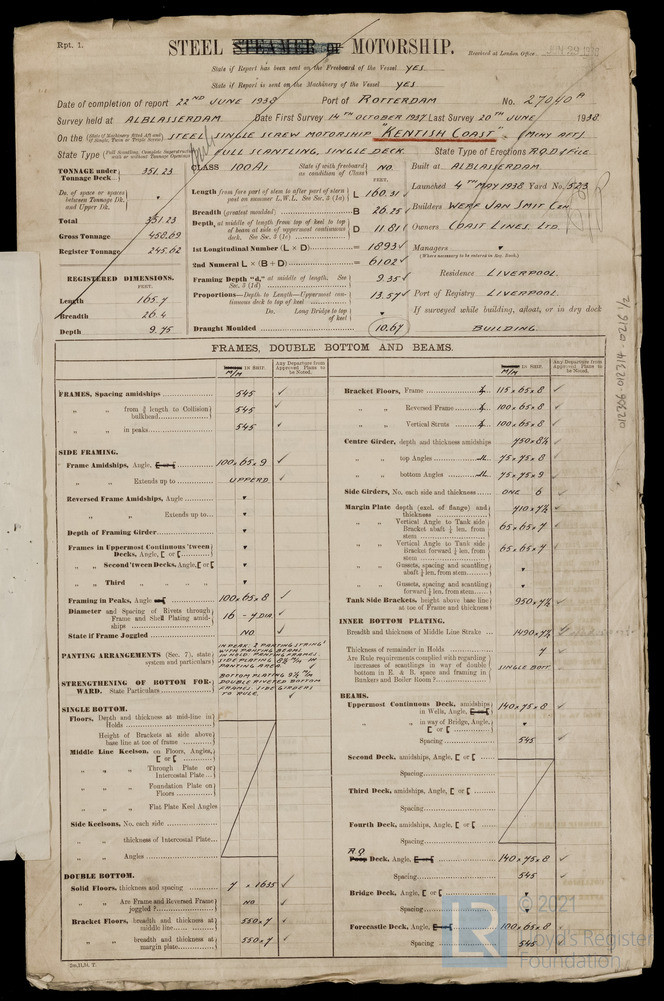 Rpt. 1.
STEEL STEAMER OR MOTORSHIP.
Received at London Office JUN 29 1938
State if Report has been sent on the Freeboard of the Vessel YES
State if Report is sent on the Machinery of the Vessel YES
Date of completion of report 22ND JUNE 1938 Port of ROTTERDAM No. 27040A
Survey held at ALBLASSERDAM Date First Survey 14TH OCTOBER 1937 Last Survey 20TH JUNE 1938
On the STEEL SINGLE SCREW MOTORSHIP "KENTISH COAST" (MCHY AFT)
State Type FULL SCANTLING, SINGLE DECK State Type of Erections R.Q.D & F'CLE
TONNAGE under Tonnage Deck 351.23
Do. of space or spaces between Tonnage Dk. and Upper Dk.
Total 351.23
Gross Tonnage 458.69
Register Tonnage 245.62
REGISTERED DIMENSIONS.
FEET.
Length 165.7
Breadth 26.4
Depth 9.75
CLASS 100A1 State if with freeboard as condition of Class NO
FEET.
Length from fore part of stem to after part of stern post on summer L.W.L. See Sec. 3 (1a) L 160.31
Breadth (greatest moulded) B 26.25
Depth, at middle of length from top of keel to top of beam at side of uppermost continuous deck. See Sec. 3 (1c) D 11.81
1st Longitudinal Number (L × D) = 1893
2nd Numeral L × (B + D) = 6102
Framing Depth "d," at middle of length. See Sec. 3 (1d) 9.35
Proportions—Depth to Length—Uppermost continuous deck to top of keel 13.57
Do. Long Bridge to top of keel
Draught Moulded 10.67
Built at ALBLASSERDAM
Launched 4TH MAY 1938 Yard No. 523
Builders WERF JAN SMIT CZN
Owners COAST LINES, LTD.
Managers
(Where necessary to be entered in Reg. Book.)
Residence LIVERPOOL
Port of Registry LIVERPOOL
If surveyed while building, afloat, or in dry dock
BUILDING.
FRAMES, DOUBLE BOTTOM AND BEAMS.
M/M IN SHIP.
Any Departure from Approved Plans to be Noted.
FRAMES, Spacing amidships 545
" " from ⅗ length to Collision bulkhead 545
" " in peaks 545
SIDE FRAMING.
Frame Amidships, Angle, 100 x 65 x 9
" " Extends up to UPPER D
Reversed Frame Amidships, Angle
" " Extends up to
Depth of Framing Girder
Frames in Uppermost Continuous 'tween Decks, Angle, [ or [
" " Second 'tween Decks, Angle, [ or [
" " Third " " " "
Framing in Peaks, Angle 100 x 65 x 8
Diameter and Spacing of Rivets through Frame and Shell Plating amidships 16 - 7 DIA
State if Frame Joggled NO
PANTING ARRANGEMENTS (Sec. 7), state system and particulars IN PEAK: 2 PANTING STRING'S WITH PANTING BEAMS IN HOLD: PANTING FRAMES. SIDE PLATING 8½ M/M IN PANTING AREA
STRENGTHENING OF BOTTOM FORWARD. State Particulars BOTTOM PLATING 9½ M/M DOUBLE RIVETED BOTTOM FRAMES. SIDE GIRDERS TO RULE
SINGLE BOTTOM.
Floors, Depth and thickness at mid-line in Holds
Height of Brackets at side above base line at toe of frame
Middle Line Keelson, on Floors, Angles, [ or [
" " Through Plate or Intercostal Plate
" " Foundation Plate on Floors
" " Flat Plate Keel Angles
Side Keelsons, No. each side
" " thickness of Intercostal Plate
" " Angles
DOUBLE BOTTOM.
Solid Floors, thickness and spacing 7 x 1635
" " Are Frame and Reversed Frame joggled ? NO
Bracket Floors, breadth and thickness at middle line 550 x 7
" " breadth and thickness at margin plate 550 x 7
M/M IN SHIP.
Any Departure from Approved Plans to be Noted.
Bracket Floors, Frame 115 x 65 x 8
" " Reversed Frame 100 x 65 x 8
" " Vertical Struts 100 x 65 x 8
Centre Girder, depth and thickness amidships 750 x 8½
" " top Angles 75 x 75 x 8
" " bottom Angles 75 x 75 x 9
Side Girders, No. each side and thickness ONE 6
Margin Plate depth (excl. of flange) and thickness 710 x 7½
" " Vertical Angle to Tank side Bracket abaft ¼ len. from stem 65 x 65 x 7
" " Vertical Angle to Tank side Bracket forward ¼ len. from stem 65 x 65 x 7
" " Gussets, spacing and scantling abaft ¼ len. from stem
" " Gussets, spacing and scantling forward ¼ len. from stem
Tank Side Brackets, height above base line at toe of Frame and thickness 950 x 7½
INNER BOTTOM PLATING.
Breadth and thickness of Middle Line Strake 1490 x 7½
Thickness of remainder in Holds 7
Are Rule requirements complied with regarding increases of scantlings in way of double bottom in E. & B. space and framing in Bunkers and Boiler Room ? SINGLE BOTT
BEAMS.
Uppermost Continuous Deck, amidships in Wells, Angle, 140 x 75 x 8
" " in way of Bridge, Angle, [ or [
Spacing 545
Second Deck, amidships, Angle, [ or [
Spacing
Third Deck, amidships, Angle, [ or [
Spacing
Fourth Deck, amidships, Angle, [ or [
Spacing
R.Q.
Poop Deck, Angle, 140 x 75 x 8
Spacing 545
Bridge Deck, Angle, [ or [
Spacing
Forecastle Deck, Angle, 100 x 65 x 8
Spacing 545
012306-012314-0216 1/2
LR
© 2021
Lloyd's Register
Foundation